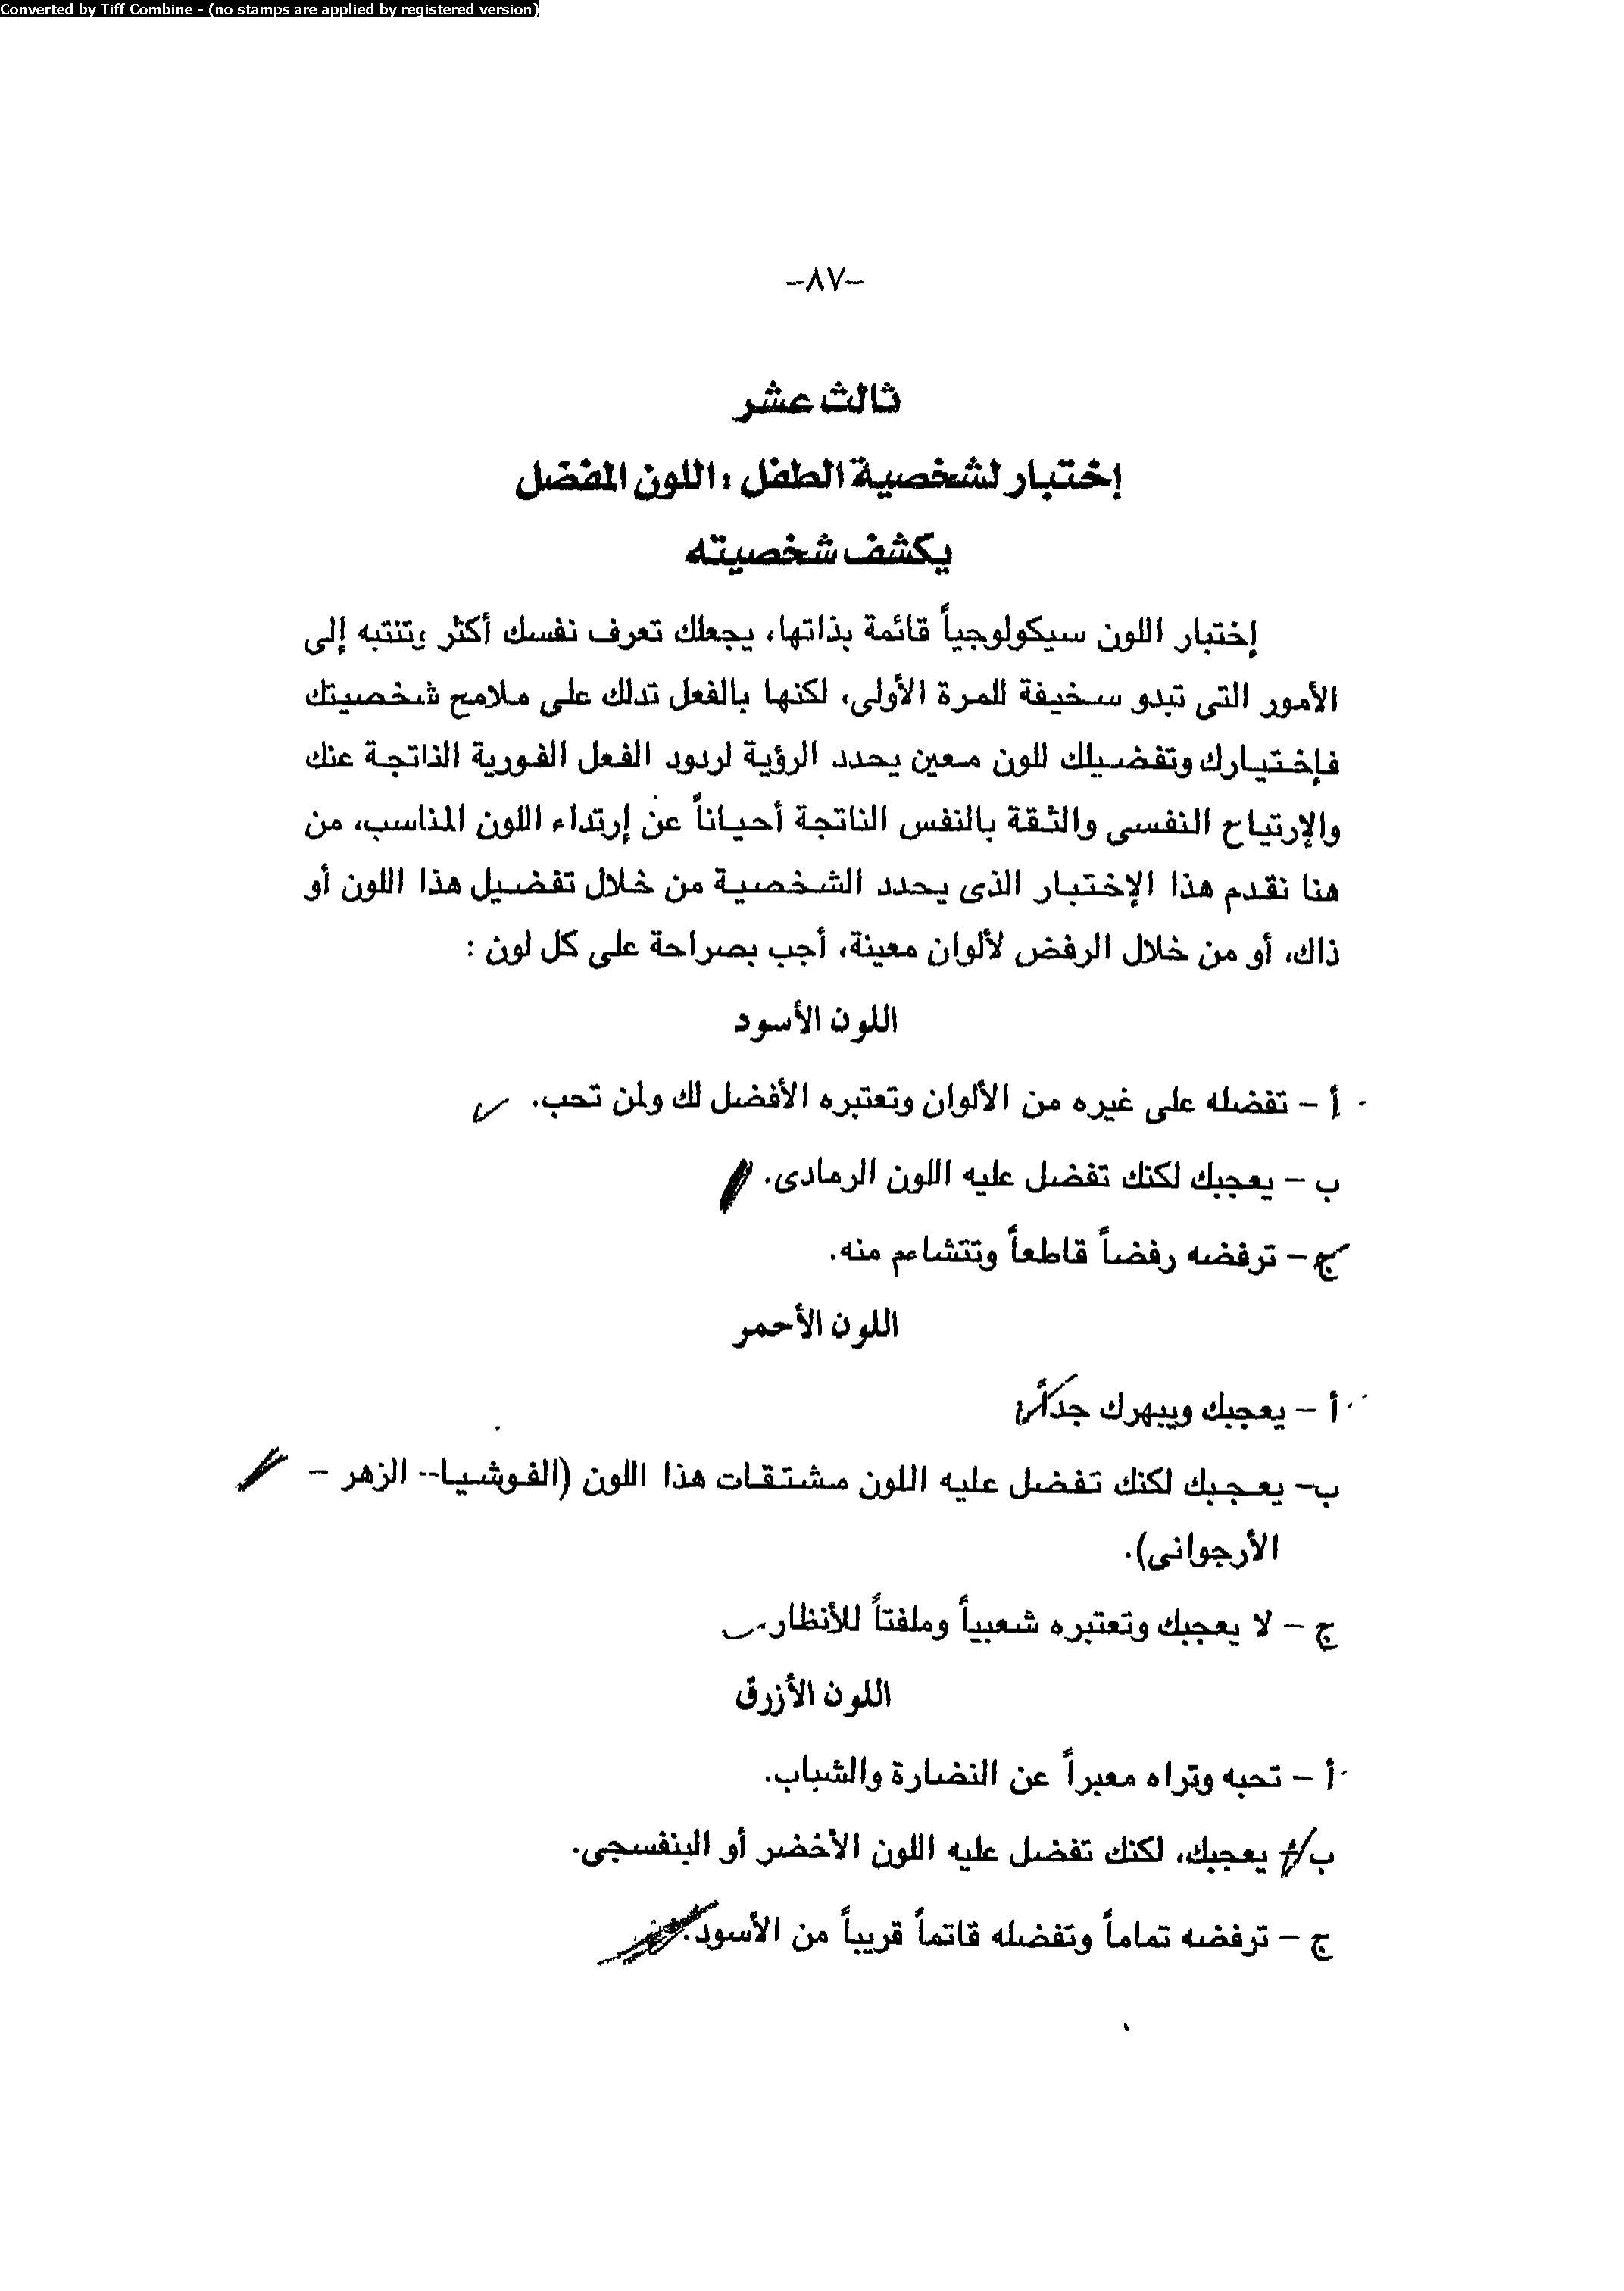 Converted by Tiff Combine - (no stamps are applied by registered version)
-٨٧-
ثالث عشر
إختبار لشخصية الطفل : اللون المفضل
يكشف شخصيته
إختبار اللون سيكولوجياً قائمة بذاتها، يجعلك تعرف نفسك أكثر وتنتبه إلى
الأمور التى تبدو سخيفة للمرة الأولى، لكنها بالفعل تدلك على ملامح شخصيتك
فإختيارك وتفضيلك للون معين يحدد الرؤية لردود الفعل الفورية الناتجة عنك
والإرتياح النفسى والثقة بالنفس الناتجة أحياناً عن إرتداء اللون المناسب، من
هنا نقدم هذا الإختبار الذى يحدد الشخصية من خلال تفضيل هذا اللون أو
ذاك، أو من خلال الرفض لألوان معينة، أجب بصراحة على كل لون :
اللون الأسود
أ - تفضله على غيره من الألوان وتعتبره الأفضل لك ولمن تحب.
ب - يعجبك لكنك تفضل عليه اللون الرمادى.
ج - ترفضه رفضاً قاطعاً وتتشاءم منه.
اللون الأحمر
أ - يعجبك ويبهرك جداً.
ب- يعجبك لكنك تفضل عليه اللون مشتقات هذا اللون (الفوشيا-- الزهر -
الأرجوانى).
ج - لا يعجبك وتعتبره شعبياً وملفتاً للأنظار.
اللون الأزرق
أ - تحبه وتراه معبراً عن النضارة والشباب.
ب - يعجبك، لكنك تفضل عليه اللون الأخضر أو البنفسجى.
ج - ترفضه تماماً وتفضله قاتماً قريباً من الأسود.